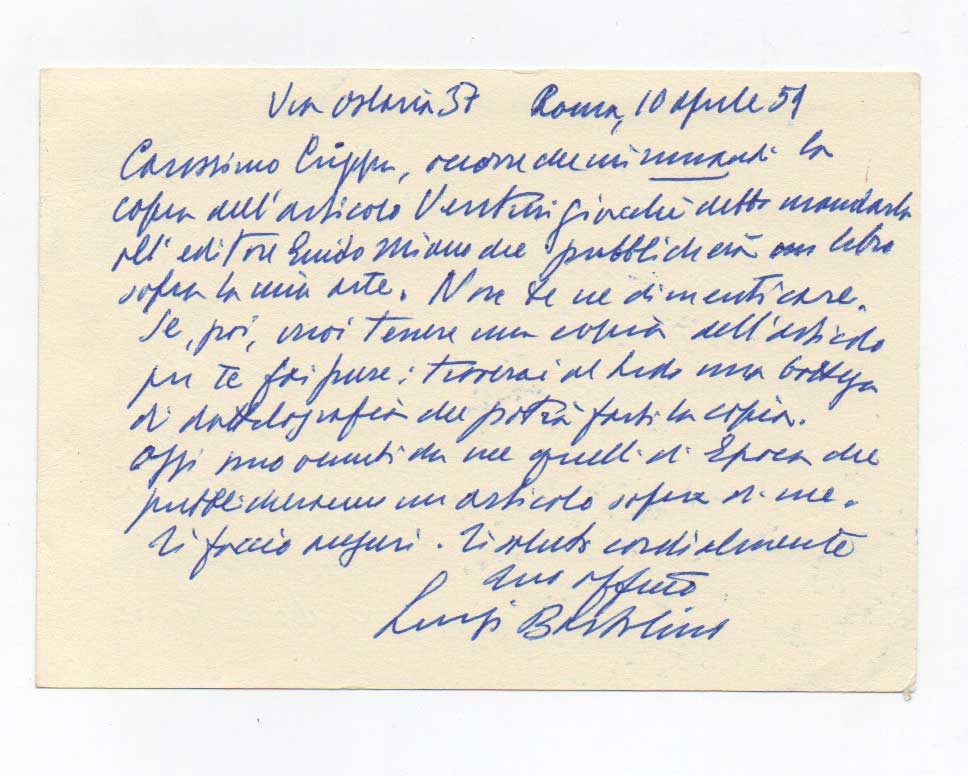 Via Oslavia 37 Roma, 10 aprile 59
Carissimo Crippa, occorre che mi rimandi la
copia dell'articolo Venturi giacchè debbo mandarla
all'editore Guido Miano che pubblicherà un libro
sopra la mia arte. Non te ne dimenticare.
Se, poi, vuoi tenere una copia dell'articolo
per te fai pure: troverai al Lido una bottega
di dattilografia che potrà farti la copia.
Oggi sono venuti da me quelli di Epoca che
pubblicheranno un articolo sopra di me.
Ti faccio auguri. Ti saluto cordialmente
tuo aff.mo
Luigi Bartolini